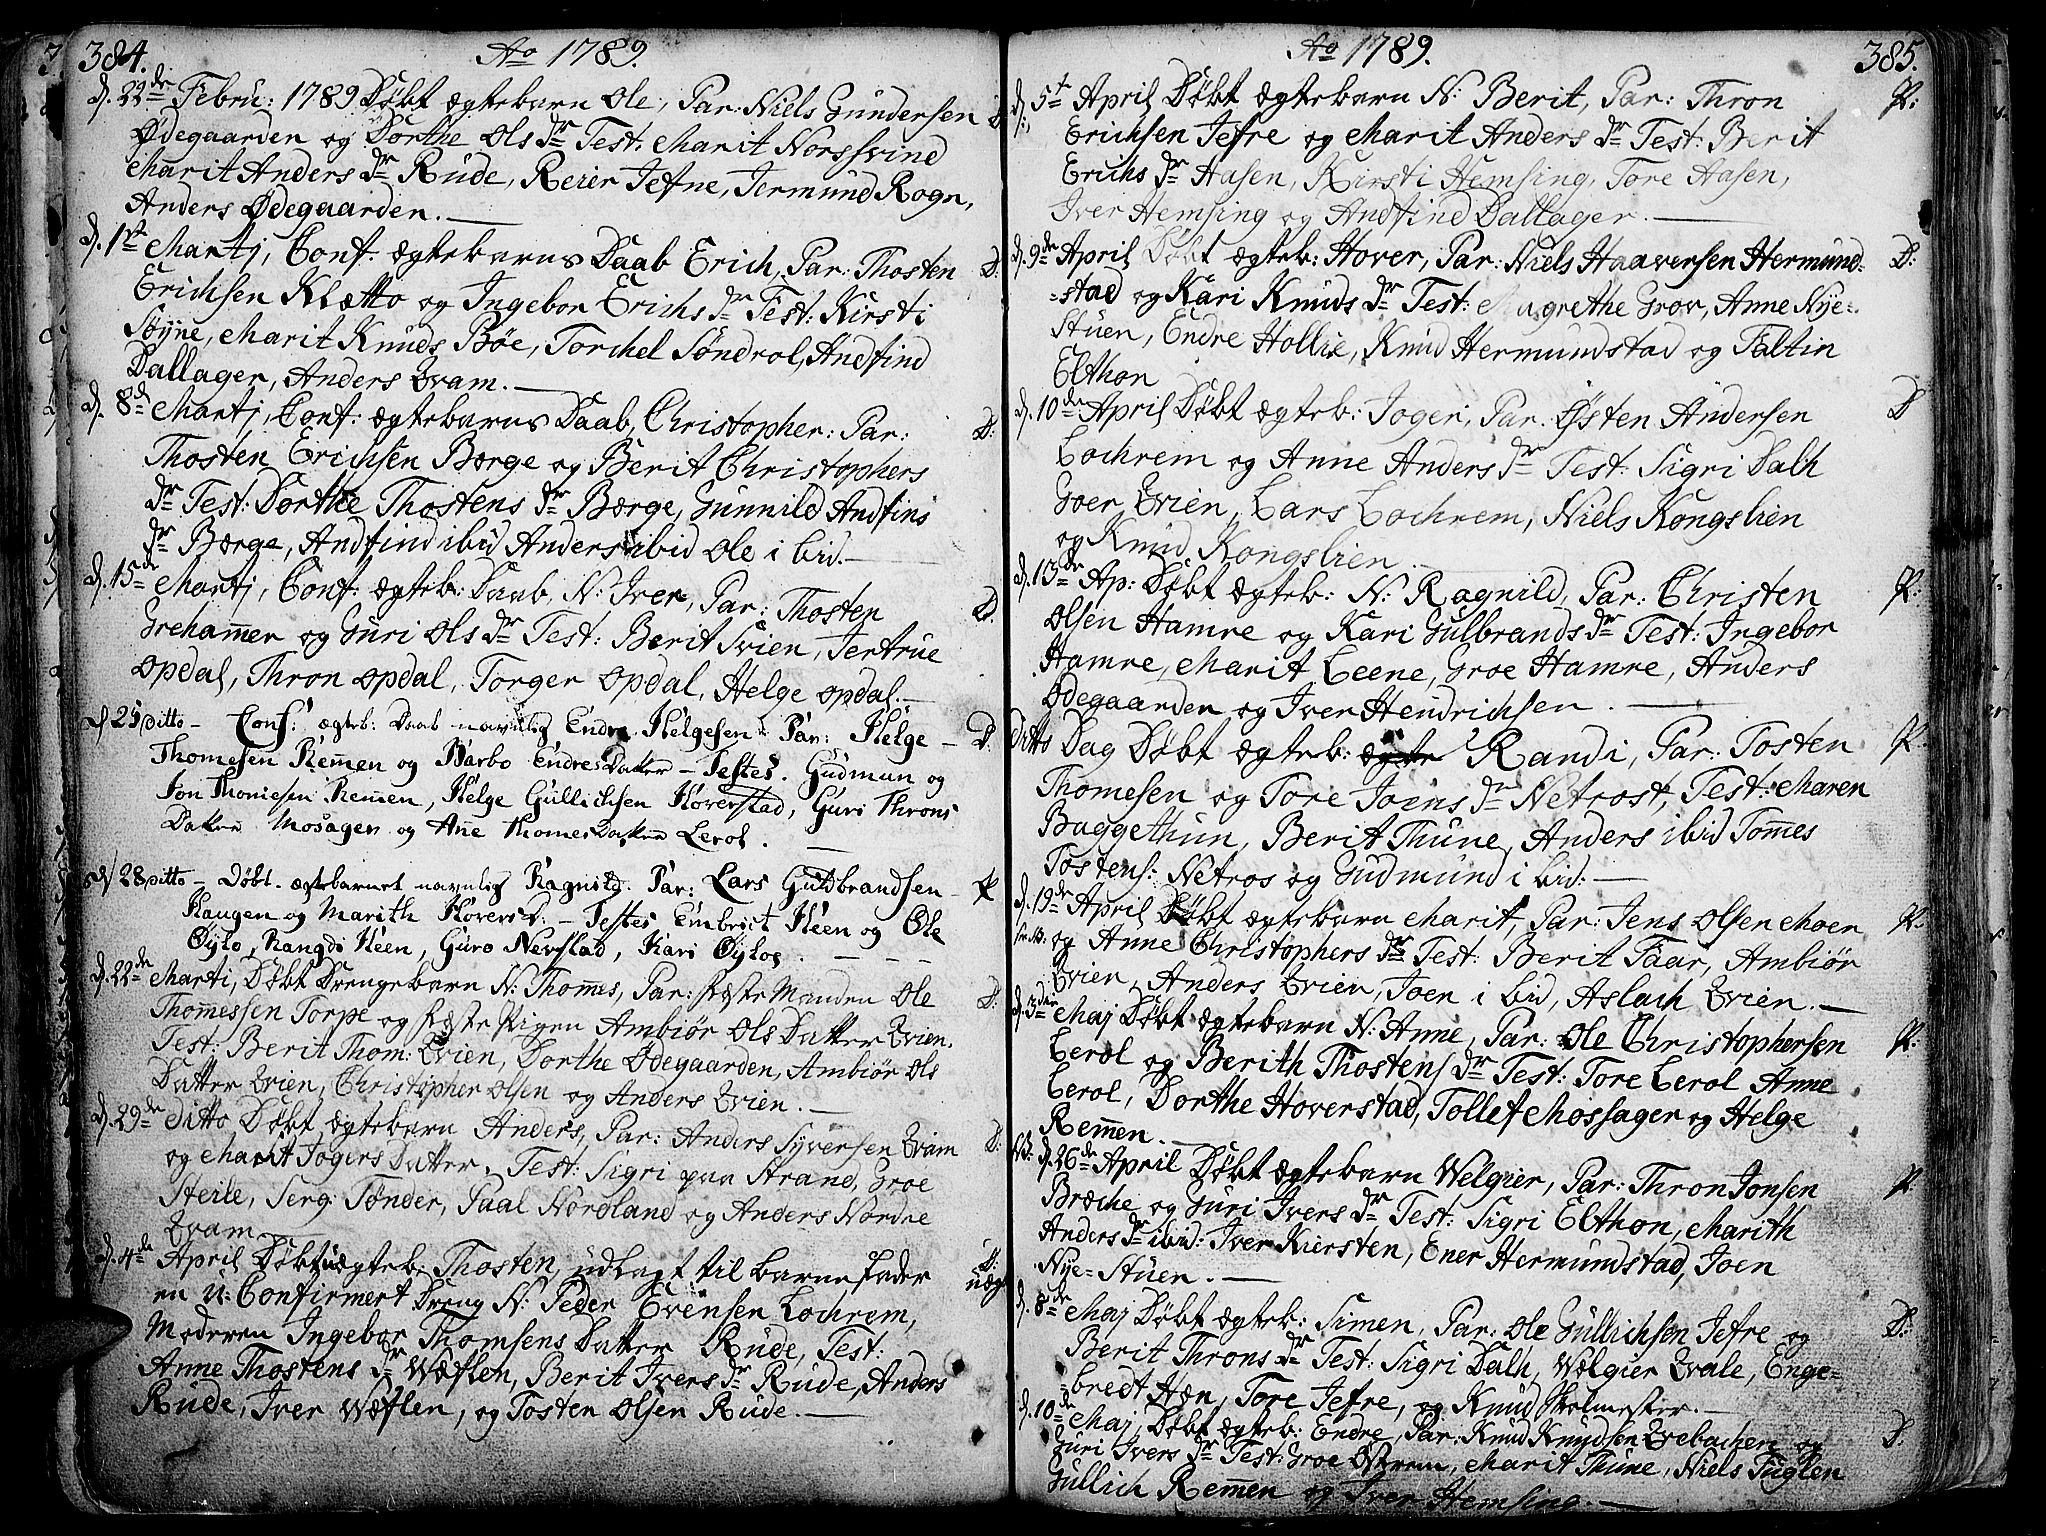 384. Ao 1789.
d. 22de Febru: 1789 Døbt ægtebarn Ole, Par: Niels Gundersen
Ødegaarden og Dorthe Ols dr Test: Marit Norssvind
Marit Anders dr Rude, Reier Jefne, Jermund Rogn,
Anders Ødegaarden.
d. 1st Martj, Conf. ægtebarns Daab Erich, Par: Thosten D:
Erichsen Klætto og Ingebor Erichs dr Test: Kirsti
Søyne, Marit Knuds Bøe, Torchel Søndrol, Andfind
Dallager, Anders Qvam.
d. 8de Martj, Conf: ægtebarns Daab, Christopher: Par: D:
Thosten Erichsen Børge og Berit Christophers
dr Test: Dorthe Thostens dr Børge, Gunnild Andfins
dr Børge, Andfind ibid Anders ibid Ole ibid.
d. 15de Martj, Conf: ægteb: Daab, N: Iver, Par: Thosten D.
Grehammer og Guri Ols dr Test: Berit Svien, Jertrue
Opdal, Thron Opdal, Torger Opdal, Helge Opdal.
d 25 Ditto - Conf: ægteb: Daab navnlig Endre Helgesen Par: Helge - D.
Thomesen Remmen og Barbo Endres Datter - Testes. Gudmun og
Jon Thomesen Remmen, Helge Gullichsen Hoverstad, Guri Throns
Datter Mosagen og Anne Thomes Datter Lerol.
d 28 Ditto - Døbt. ægtebarnet navnlig Ragnild. Par: Lars Guldbrandsen - P
Haugen og Marith Hoversd. - Testes Embrigt Heen og Ole
Øylo, Rangdi Heen, Guro Nevstad, Kari Øyloe. - - -
d. 22de Marti, Døbt Drengebarn N: Thomes, Par: fæste Manden Ole D:
Thomessen Torpe og fæste Pigen Ambiør Ols Datter Qvien.
Test: Berit Thom: Qvien, Dorthe Ødegaarden, Ambiør Ols
Datter Qvien, Christopher Olsen og Anders Qvien.
d. 29de ditto Døbt ægtebarn Anders, Par: Anders Syversen Qvam D:
og Marit Jogers Datter, Test: Sigri paa Strand, Groe
Steile, Serg: Tønder, Paal Nordland og Anders Nordre
Qvam
d. 4de April Døbt uægteb: Thosten, udlagt til barnefader D:
en U: Confirmert Dreng N: Peder Evensen Lochrem, uægt
Moderen Ingebor Thomsens Datter Rude, Test:
Anne Thostens dr Wæflen, Berit Ivers dr Rude, Anders
Rude, Iver Wæflen, og Tosten Olsen Rude.
Ao 1789. 385.
d. 5t April Døbt ægtebarn N: Berit, Par: Thron P:
Erichsen Jefre og Marit Anders dr Test: Berit
Erichs dr Hasen, Kirsti Hemsing, Tore Hasen,
Iver Hemsing og Andfind Dallager.
d. 9de April Døbt ægteb: Hover, Par: Niels Haaversen Hermund= D:
=stad og Kari Knuds dr Test: Magrethe Grov, Anne Nye=
Stuen, Endre Hollie, Knud Hermundstad og Faltin
Elthon
d. 10de April Døbt ægteb: Joger, Par. Østen Andersen D
Lochrem og Anne Anders dr Test: Sigri Dalh
Goer Qvien, Lars Lochrem, Niels Kongslien
og Knud Kongslien.
d. 13de Ap: Døbt ægteb: N: Ragnild, Par: Christen P:
Olsen Hamre og Kari Gulbrands dr Test: Ingebor
Hamre, Marit Leene, Groe Hamre, Anders
Ødegaarden og Iver Hendrichsen.
Ditto Dag Døbt ægteb: ægte Randi, Par: Tosten P.
Thomesen og Tore Joens dr Netrost, Test: Maren
Baggethun, Berit Thune, Anders ibid Tommes
Tostens: Netros og Gudmund ibid:
d. 19de April Døbt ægtebarn Marit, Par: Jens Olsen Moen P.
og Anne Christophers dr Test: Berit Faar, Ambiør
Qvien, Anders Qvien, Joen ibid, Aslach Qvien.
d. 3die Maj Døbt ægtebarn N: Anne, Par: Ole Christophersen P:
Lerol og Berith Thostens dr Test: Tore Lerol Anne
Lerol, Dorthe Hoverstad, Tollef Mossager og Helge
Remmen.
NB: d. 26de April Døbt ægtebarn Welgier, Par: Thron Jonsen P.
Bræche og Guri Ivers dr Test: Sigri Elthon, Marith
Anders dr ibid: Iver Kiersten, Ener Hermundstad, Joen
Nye=Stuen.
d. 8de Maj Døbt ægteb: Simen, Par: Ole Gullichsen Jefre og D:
Berit Throns dr Test: Sigri Dalh, Wælgier Qvale, Enge=
=bredt Hæn, Tore Jefre, og Knud Skolmester.
d. 10de Maj, Døbt ægteb: Endre, Par: Knud Knudsen Qvebachen og D.
Guri Ivers dr Test: Groe Østrem, Marit Thune, Niels Fuglen
Gullich Remmen og Iver Hemsing.